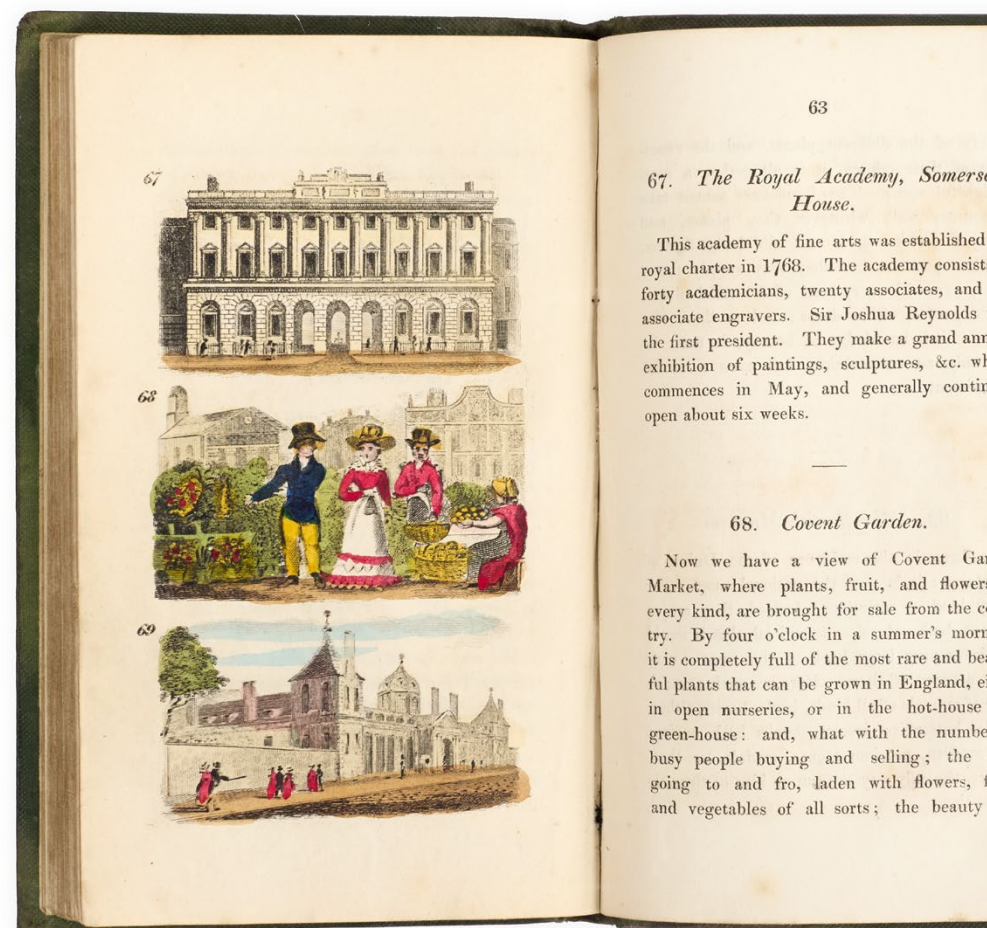 67
68
69
63
67. The Royal Academy, Somers
House.
This academy of fine arts was established
royal charter in 1768. The academy consist
forty academicians, twenty associates, and
associate engravers. Sir Joshua Reynolds
the first president. They make a grand ann
exhibition of paintings, sculptures, &c. wh
commences in May, and generally contin
open about six weeks.
68. Covent Garden.
Now we have a view of Covent Gar
Market, where plants, fruit, and flowers
every kind, are brought for sale from the c
try. By four o'clock in a summer's morn
it is completely full of the most rare and bea
ful plants that can be grown in England, ei
in open nurseries, or in the hot-house
green-house: and, what with the numbe
busy people buying and selling; the
going to and fro, laden with flowers, f
and vegetables of all sorts; the beauty